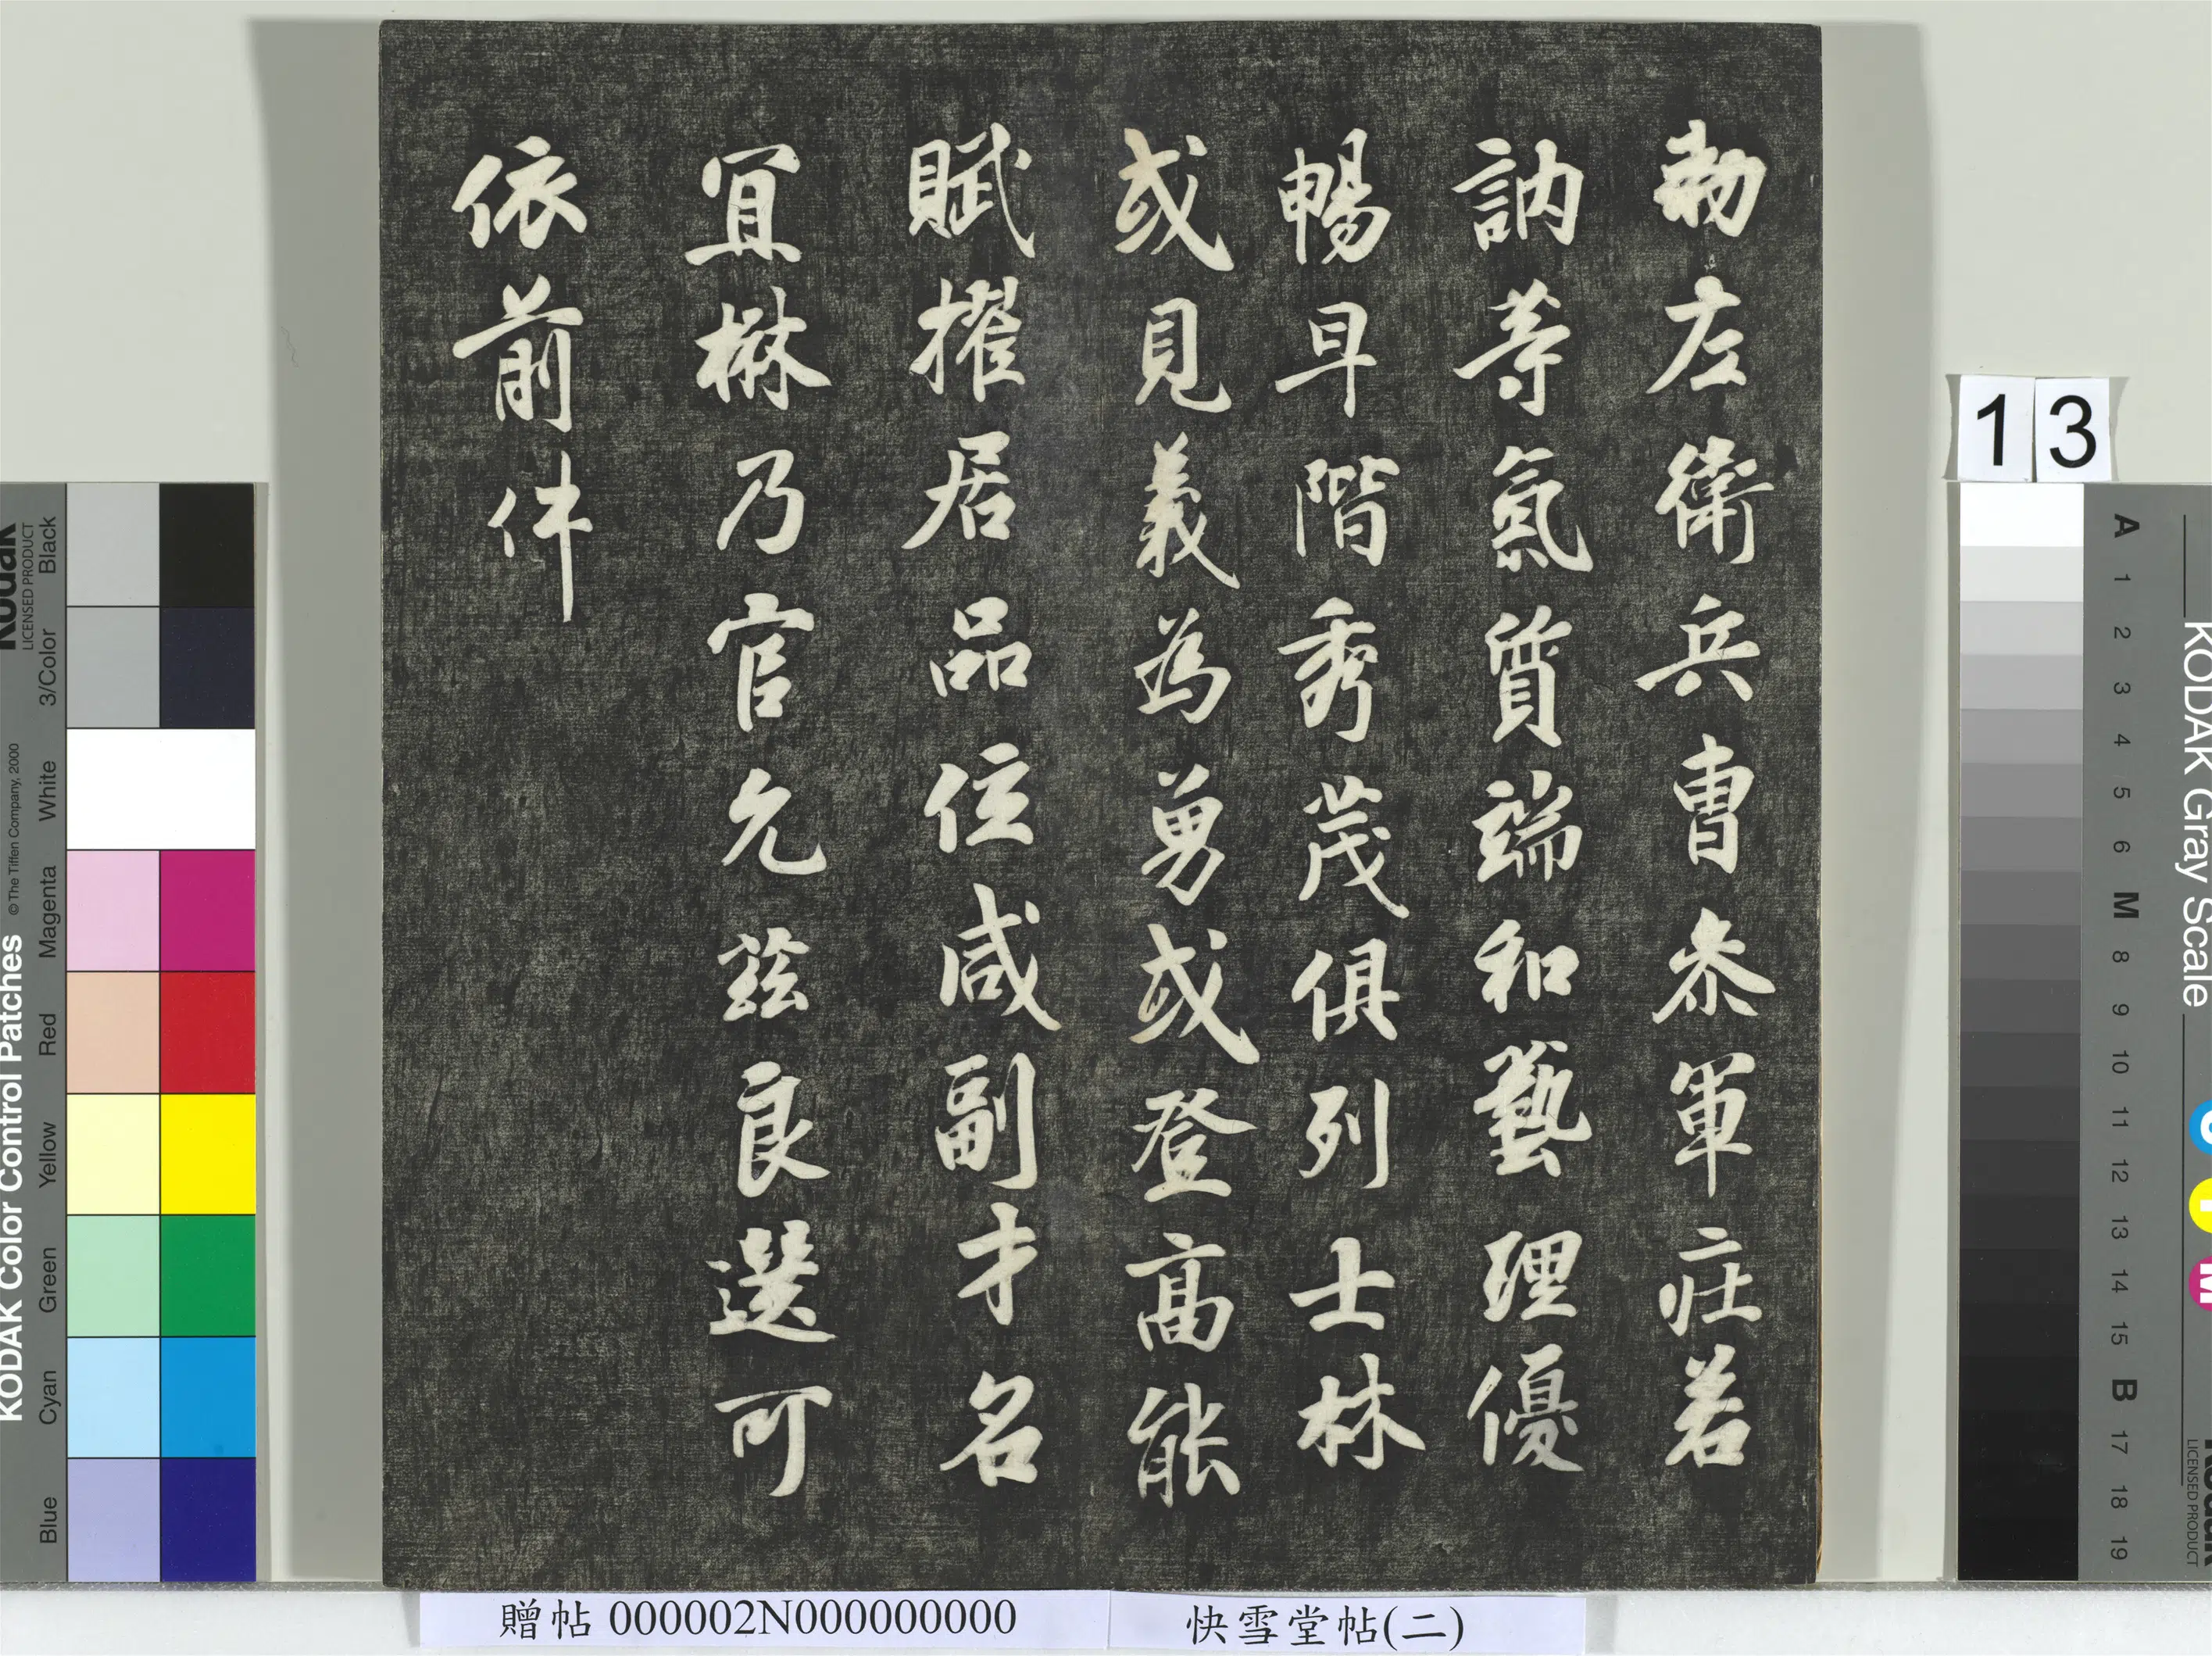 勑左衛兵曹叅軍莊若
訥等氣質端和藝理優
暢早階秀茂俱列士林
或見義為勇或登高能
賦擢居品位咸副才名
宜楙乃官允茲良選可
依前件
13
贈帖 000002N000000000
快雪堂帖(二)
KODAK Color Control Patches
© The Tiffen Company, 2000
Kodak
LICENSED PRODUCT
Blue
Cyan
Green
Yellow
Red
Magenta
White
3/Color
Black
KODAK Gray Scale
A 1 2 3 4 5 6 M 8 9 10 11 12 13 14 15 B 17 18 19
C
Y
M
Kodak
LICENSED PRODUCT